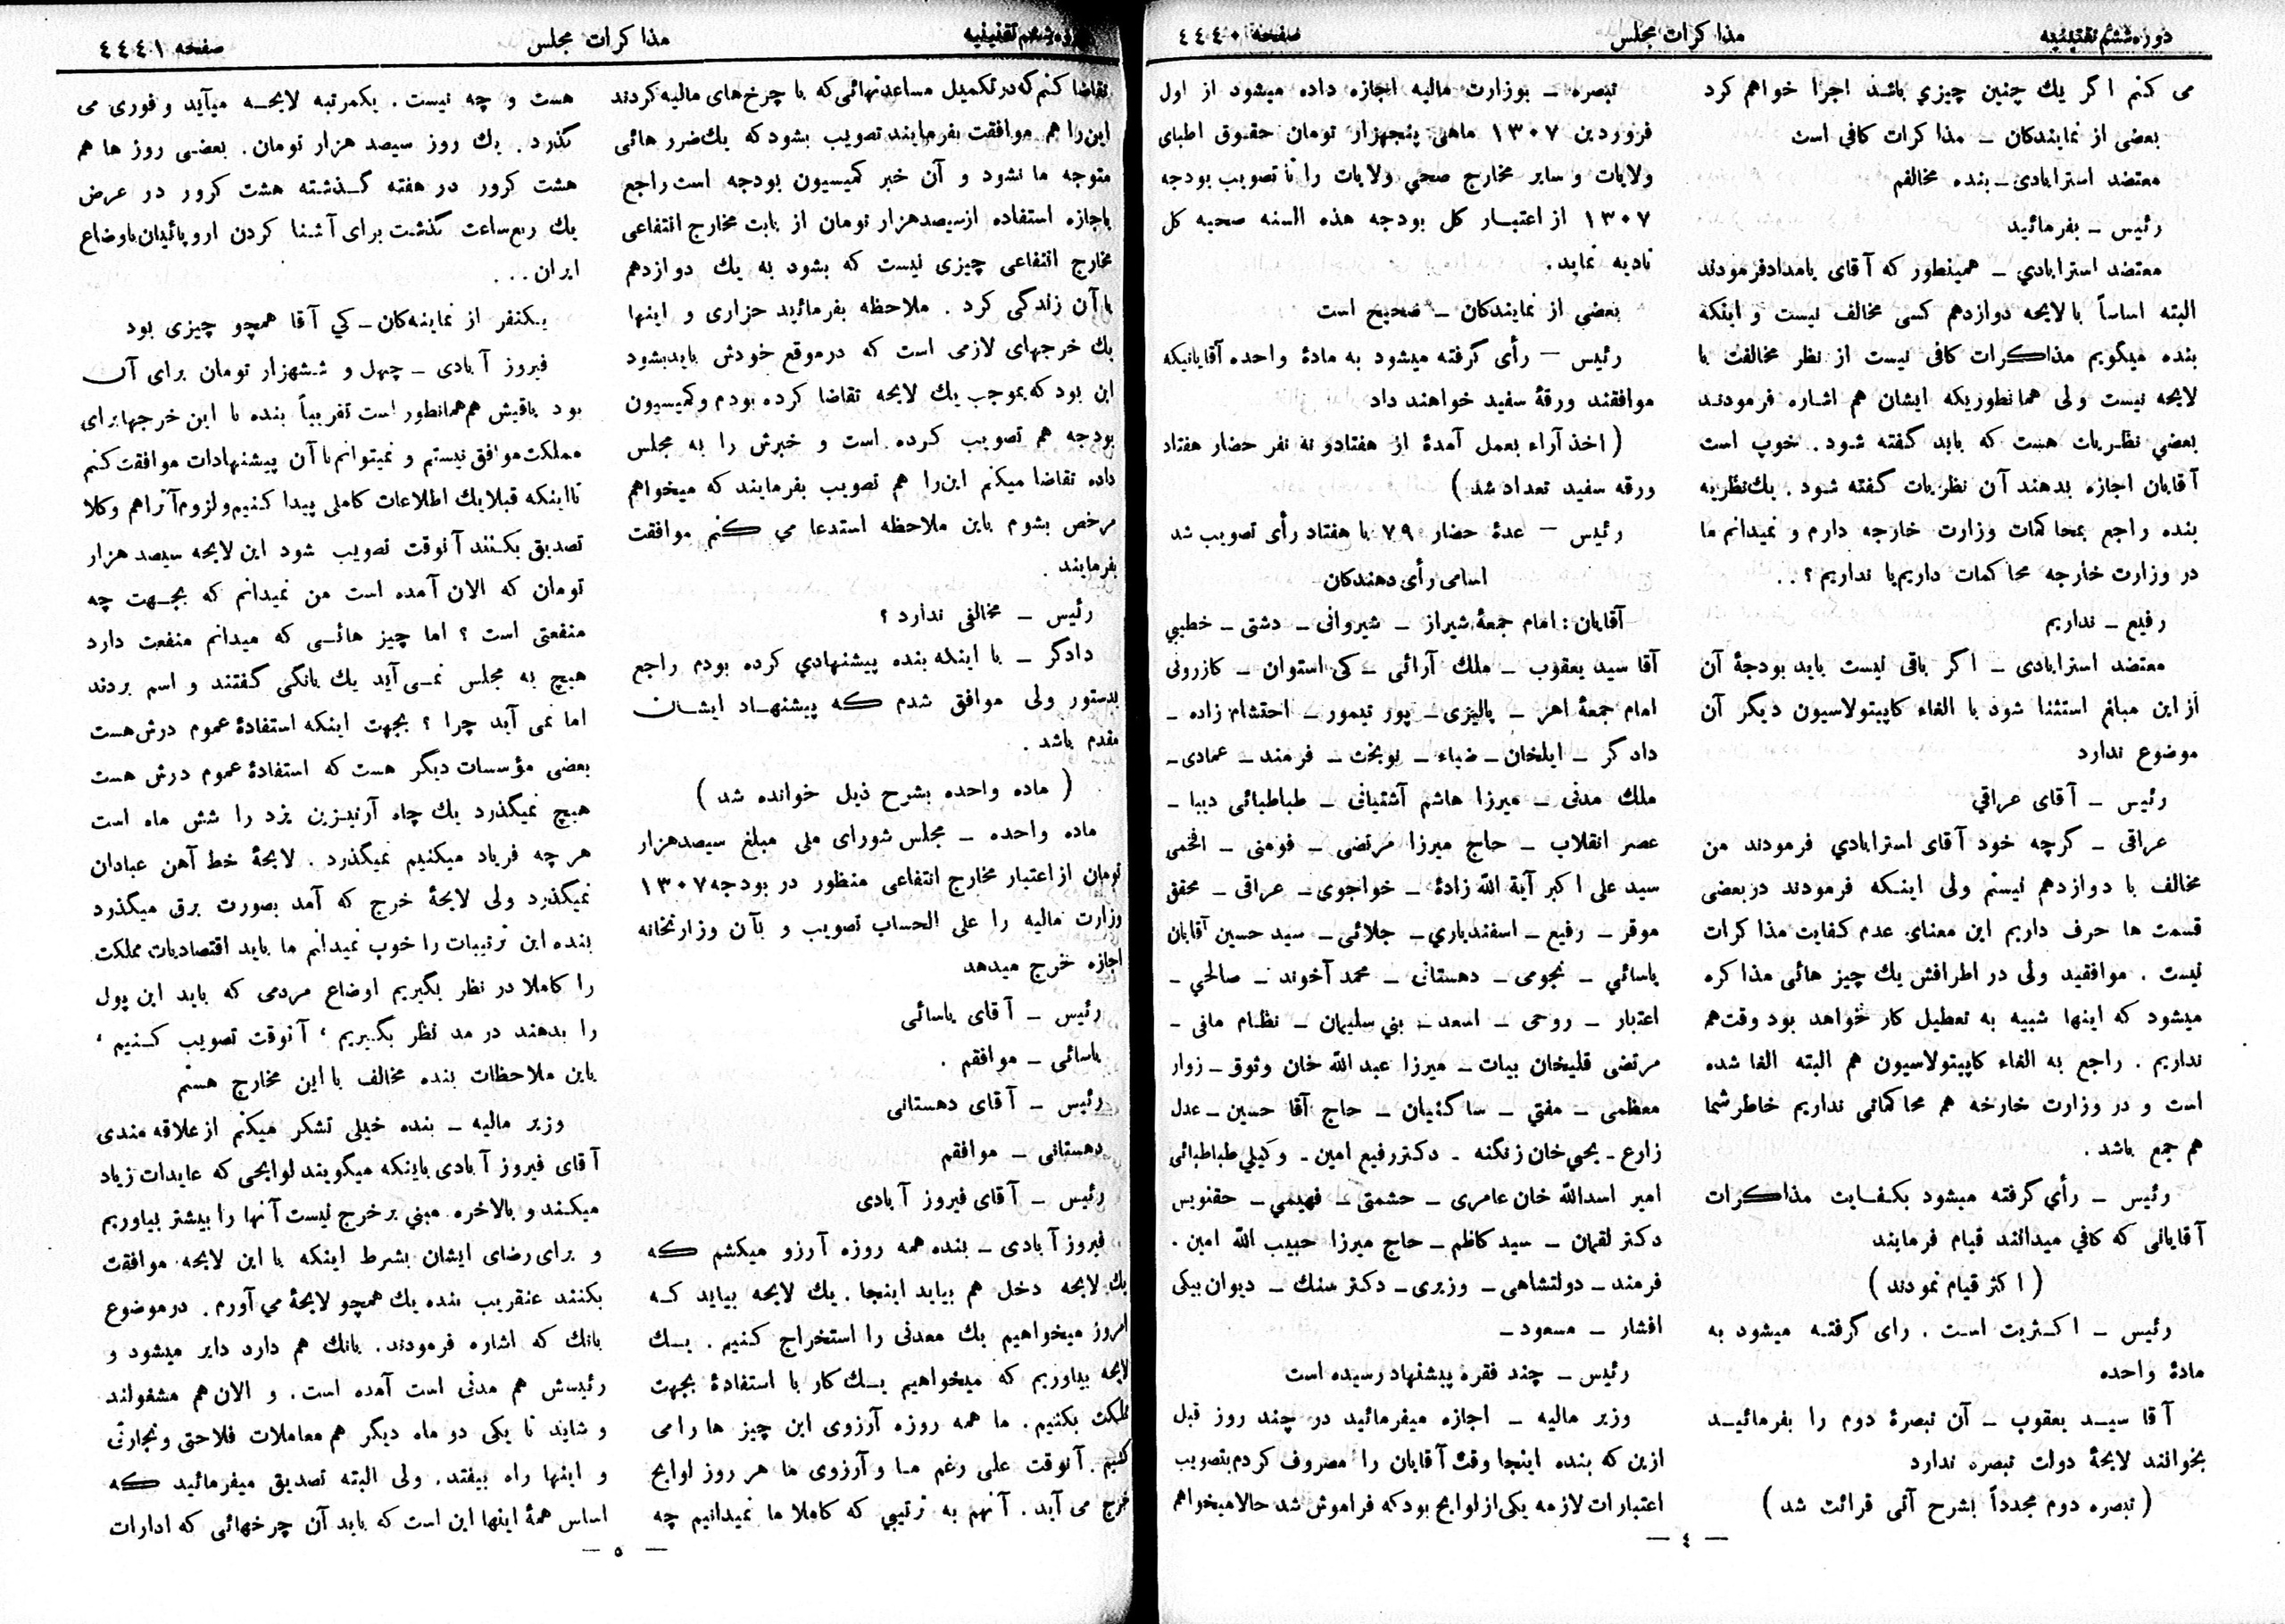 دوره ششم تقنینیه
مذاکرات مجلس
صفحه ٤٤٤٠
می کنم اگر یك چنین چیزي باشد اجرا خواهم کرد
بعضی از نمایندکان ـ مذاکرات کافی است
معتضد استرابادی ـ بنده مخالفم
رئیس ـ بفرمائید
معتضد استرابادي ـ همینطور که آقای بامداد فرمودند
البته اساساً با لایحه دوازدهم کسی مخالف نیست و اینکه
بنده میگویم مذاکرات کافی نیست از نظر مخالفت با
لایحه نیست ولی همانطوریکه ایشان هم اشاره فرمودند
بعضي نظریات هست که باید گفته شود . خوب است
آقایان اجازه بدهند آن نظریات گفته شود . یك نظریه
بنده راجع بمحاکمات وزارت خارجه دارم و نمیدانم ما
در وزارت خارجه محاکمات داریم یا نداریم ؟ . .
رفیع ـ نداریم
معتضد استرابادی ـ اگر باقی نیست باید بودجۀ آن
از این مبلغ استثنا شود با الغاء کاپیتولاسیون دیگر آن
موضوع ندارد
رئیس ـ آقای عراقي
عراقی ـ گرچه خود آقای استرابادي فرمودند من
مخالف با دوازدهم نیستم ولی اینکه فرمودند در بعضی
قسمت ها حرف داریم این معنای عدم کفایت مذاکرات
نیست . موافقید ولی در اطرافش یك چیز هائی مذاکره
میشود که اینها شبیه به تعطیل کار خواهد بود وقت هم
نداریم . راجع به الغاء کاپیتولاسیون هم البته الغا شده
است و در وزارت خارخه هم محاکماتی نداریم خاطر شما
هم جمع باشد .
رئیس ـ رأي گرفته میشود بکفایت مذاکرات
آقایانی که کافي میدانند قیام فرمایند
( اکثر قیام نمودند )
رئیس ـ اکثریت است . رای گرفته میشود به
مادۀ واحده
آقا سید یعقوب ـ آن تبصرۀ دوم را بفرمائید
بخوانند لایحۀ دولت تبصره ندارد
( تبصره دوم مجدداً بشرح آتی قرائت شد )
تبصره ـ بوزارت مالیه اجازه داده میشود از اول
فروردین ١٣٠٧ ماهی پنجهزار تومان حقوق اطبای
ولایات و سایر مخارج صحي ولایات را تا تصویب بودجه
١٣٠٧ از اعتبار کل بودجه هذه السنه صحیه کل
تادیه نماید .
بعضي از نمایندکان ـ صحیح است
رئیس ـ رأی گرفته میشود به مادۀ واحده آقایانیکه
موافقند ورقۀ سفید خواهند داد
( اخذ آراء بعمل آمدۀ از هفتاد و نه نفر حضار هفتاد
ورقه سفید تعداد شد )
رئیس ـ عدۀ حضار ٧٩ با هفتاد رأی تصویب شد
اسامی رأی دهندکان
آقایان : امام جمعۀ شیراز ـ شیروانی ـ دشتی ـ خطیبي
آقا سید یعقوب ـ ملك آرائی ـ کی استوان ـ کازرونی
امام جمعۀ اهر ـ پالیزی ـ پور تیمور ـ احتشام زاده ـ
دادگر ـ ایلخان ـ ضیاء ـ نوبخت ـ فرمند ـ عمادی ـ
ملك مدنی ـ میرزا هاشم آشتیانی ـ طباطبائی دیبا ـ
عصر انقلاب ـ حاج میرزا مرتضی ـ فومنی ـ افخمی
سید علی اکبر آیة الله زادۀ ـ خواجوی ـ عراقی ـ محقق
موقر ـ رفیع ـ اسفندیاري ـ جلائی ـ سید حسین آقایان
یاسائي ـ نجومی ـ دهستانی ـ محمد آخوند ـ صالحي ـ
اعتبار ـ روحی ـ اسعد ـ بني سلیمان ـ نظام مافی ـ
مرتضی قلیخان بیات ـ میرزا عبدالله خان وثوق ـ زوار
معظمی ـ مفتي ـ ساکنیان ـ حاج آقا حسین ـ عدل
زارع ـ یحیي خان زنگنه ـ دکتر رفیع امین ـ وکیلي طباطبائی
امیر اسدالله خان عامری ـ حشمتی ـ فهیمي ـ حقنویس
دکتر لقمان ـ سید کاظم ـ حاج میرزا حبیب الله امین .
فرمند ـ دولتشاهی ـ وزیری ـ دکتر سنك ـ دیوان بیکی
افشار ـ مسعود ـ
رئیس ـ چند فقره پیشنهاد رسیده است
وزیر مالیه ـ اجازه میفرمائید در چند روز قبل
ازین که بنده اینجا وقت آقایان را مصروف کردم بتصویب
اعتبارات لازمه یکی از لوایح بود که فراموش شد حالا میخواهم
— ٤ —
دوره ششم تقنینیه
مذاکرات مجلس
صفحه ٤٤٤١
تقاضا کنم که در تکمیل مساعدتهائی که با چرخ های مالیه کردند
این را هم موافقت بفرمایند تصویب بشود که یك ضرر هائی
متوجه ما نشود و آن خبر کمیسیون بودجه است راجع
باجازه استفاده از سیصد هزار تومان از بابت مخارج انتفاعی
مخارج انتفاعی چیزی نیست که بشود به یك دوازدهم
با آن زندگی کرد . ملاحظه بفرمائید حزاری و اینها
یك خرجهای لازمی است که در موقع خودش باید بشود
این بود که بموجب یك لایحه تقاضا کرده بودم و کمیسیون
بودجه هم تصویب کرده است و خبرش را به مجلس
داده تقاضا میکنم این را هم تصویب بفرمایند که میخواهم
مرخص بشوم باین ملاحظه استدعا می کنم موافقت
بفرمایند .
رئیس ـ مخالفی ندارد ؟
دادگر ـ با اینکه بنده پیشنهادي کرده بودم راجع
بدستور ولی موافق شدم که پیشنهاد ایشان
مقدم باشد .
( ماده واحده بشرح ذیل خوانده شد )
ماده واحده ـ مجلس شورای ملی مبلغ سیصد هزار
تومان از اعتبار مخارج انتفاعی منظور در بودجه ١٣٠٧
وزارت مالیه را علی الحساب تصویب و بآن وزارتخانه
اجازه خرج میدهد
رئیس ـ آقای یاسائی
یاسائی ـ موافقم .
رئیس ـ آقای دهستانی
دهستانی ـ موافقم
رئیس ـ آقای فیروز آبادی
فیروز آبادی ـ بنده همه روزه آرزو میکشم که
یك لایحه دخل هم بیاید اینجا . یك لایحه بیاید که
امروز میخواهیم یك معدنی را استخراج کنیم . یك
لایحه بیاوریم که میخواهیم یك کار با استفادۀ بجهت
مملکت بکنیم . ما همه روزه آرزوی این چیز ها را می
کنیم . آنوقت علی رغم ما و آرزوی ما هر روز لوایح
خرج می آید . آنهم به ترتیبي که کاملا ما نمیدانیم چه
هست و چه نیست . یکمرتبه لایحه میآید و فوری می
گذرد . یك روز سیصد هزار تومان . بعضی روز ها هم
هشت کرور در هفته گذشته هشت کرور در عرض
یك ربع ساعت گذشت برای آشنا کردن اروپائیان باوضاع
ایران . . .
یکنفر از نماینده کان ـ کي آقا همچو چیزی بود
فیروز آبادی ـ چهل و ششهزار تومان برای آن
بود باقیش هم همانطور است تقریباً بنده با این خرجها برای
مملکت موافق نیستم و نمیتوانم با آن پیشنهادات موافقت کنم
تا اینکه قبلا یك اطلاعات کاملی پیدا کنیم و لزوم آنرا هم وکلا
تصدیق بکنند آنوقت تصویب شود این لایحه سیصد هزار
تومان که الان آمده است من نمیدانم که بجهت چه
منفعتی است ؟ اما چیز هائی که میدانم منفعت دارد
هیچ به مجلس نمی آید یك بانگی گفتند و اسم بردند
اما نمی آید چرا ؟ بجهت اینکه استفادۀ عموم درش هست
بعضی مؤسسات دیگر هست که استفادۀ عموم درش هست
هیچ نمیگذرد یك چاه آرتیزین یزد را شش ماه است
هر چه فریاد میکنیم نمیگذرد . لایحۀ خط آهن عبادان
نمیگذرد ولی لایحۀ خرج که آمد بصورت برق میگذرد
بنده این ترتیبات را خوب نمیدانم ما باید اقتصادیات مملکت
را کاملا در نظر بگیریم اوضاع مردمی که باید این پول
را بدهند در مد نظر بگیریم ، آنوقت تصویب کنیم ،
باین ملاحظات بنده مخالف با این مخارج هستم
وزیر مالیه ـ بنده خیلی تشکر میکنم از علاقه مندی
آقای فیروز آبادی باینکه میگویند لوایحی که عایدات زیاد
میکند و بالاخره مبني بر خرج نیست آنها را بیشتر بیاوریم
و برای رضای ایشان بشرط اینکه با این لایحه موافقت
بکنند عنقریب بنده یك همچو لایحۀ می آورم . در موضوع
بانك که اشاره فرمودند . بانك هم دارد دایر میشود و
رئیسش هم مدتی است آمده است . و الان هم مشغولند
و شاید تا یکی دو ماه دیگر هم معاملات فلاحتی و تجارتی
و اینها راه بیفتد . ولی البته تصدیق میفرمائید که
اساس همۀ اینها این است که باید آن چرخهائی که ادارات
— ٥ —